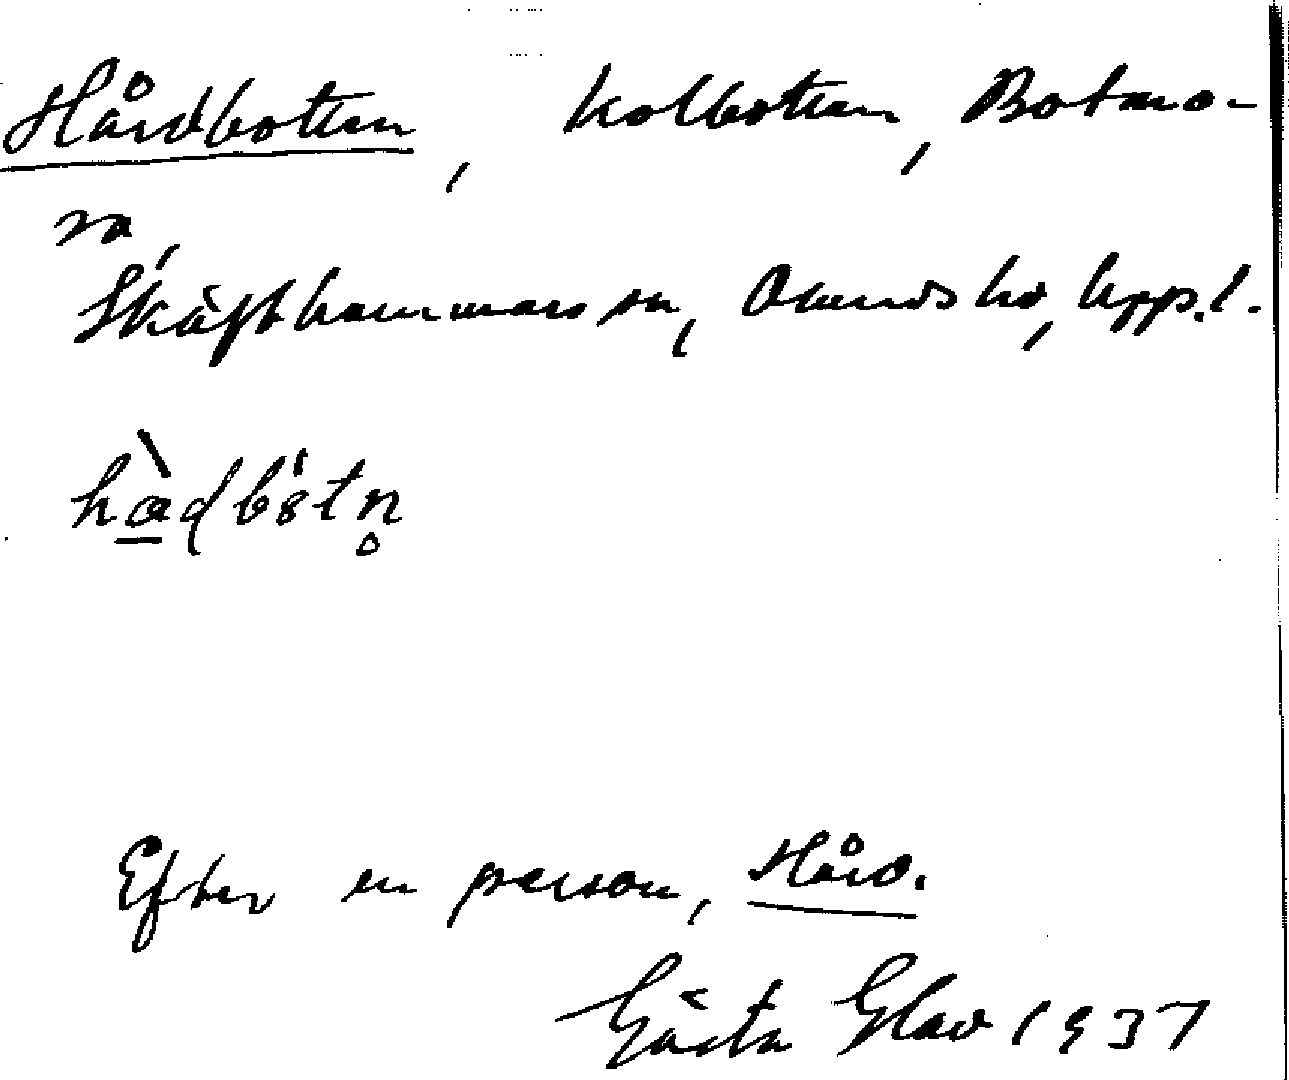 Hårdbotten, kolbotten, Botmo-
ra,
Skäfthammars sn, Olands hd, Uppl.
hadbotn̥
Efter en person, Hård.
Gösta Glad 1937